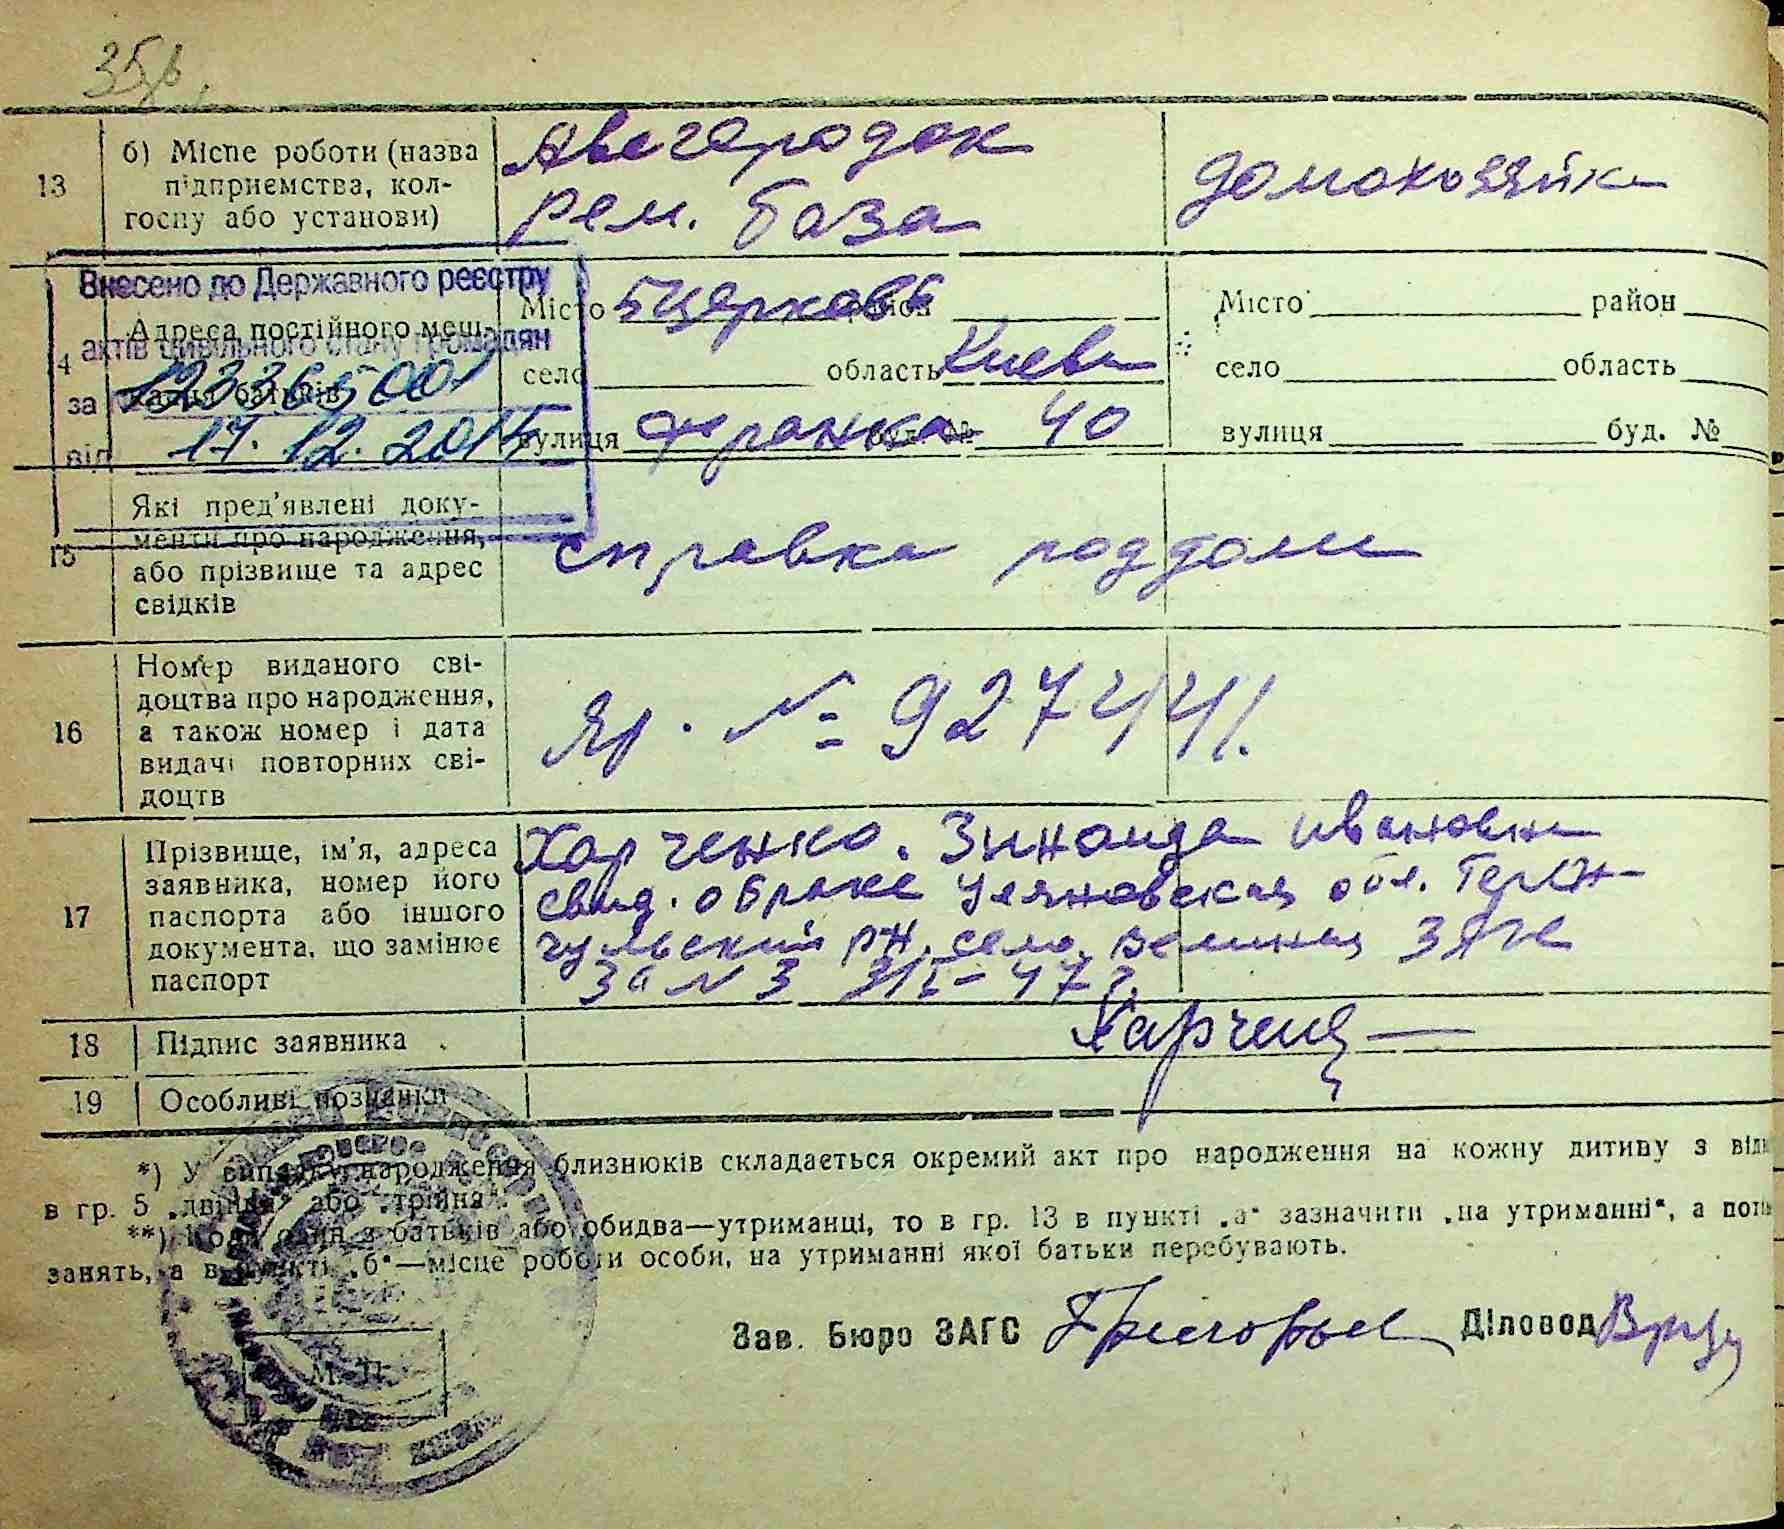 13
б) Місце роботи (назва
підприємства, кол-
госпу або установи)
Авегародок
рем. база
домохозяйка
Внесено до Державного реєстру
актів цивільного стану громадян
за
від 17. 12. 2015
Адреса постійного меш-
Місто Бцерковь район
село область Киев
вулиця Франка буд. № 40
Місто район
село область
вулиця буд. №
15
Які пред'явлені доку-
менти про народження,
або прізвище та адрес
свідків
справка роддома
16
Номер виданого сві-
доцтва про народження,
а також номер і дата
видачі повторних сві-
доцтв
№ 927441.
17
Прізвище, ім'я, адреса
заявника, номер його
паспорта або іншого
документа, що замінює
паспорт
Харченко. Зинаида Ивановна
свид. о браке Уляновская обл. Терен-
гульский р-н. село
за № 3 47 г.
18
Підпис заявника
19
Особливі позначки
*) У випадку народження близнюків складається окремий акт про народження на кожну дитину з
в гр. 5 „двійня“ або „трійня“.
**) Коли один з батьків або обидва—утриманці, то в гр. 13 в пункті „а“ зазначити „на утриманні“, а
занять, а в пункті „б“—місце роботи особи, на утриманні якої батьки перебувають.
Зав. Бюро ЗАГС
Діловод
М. П.